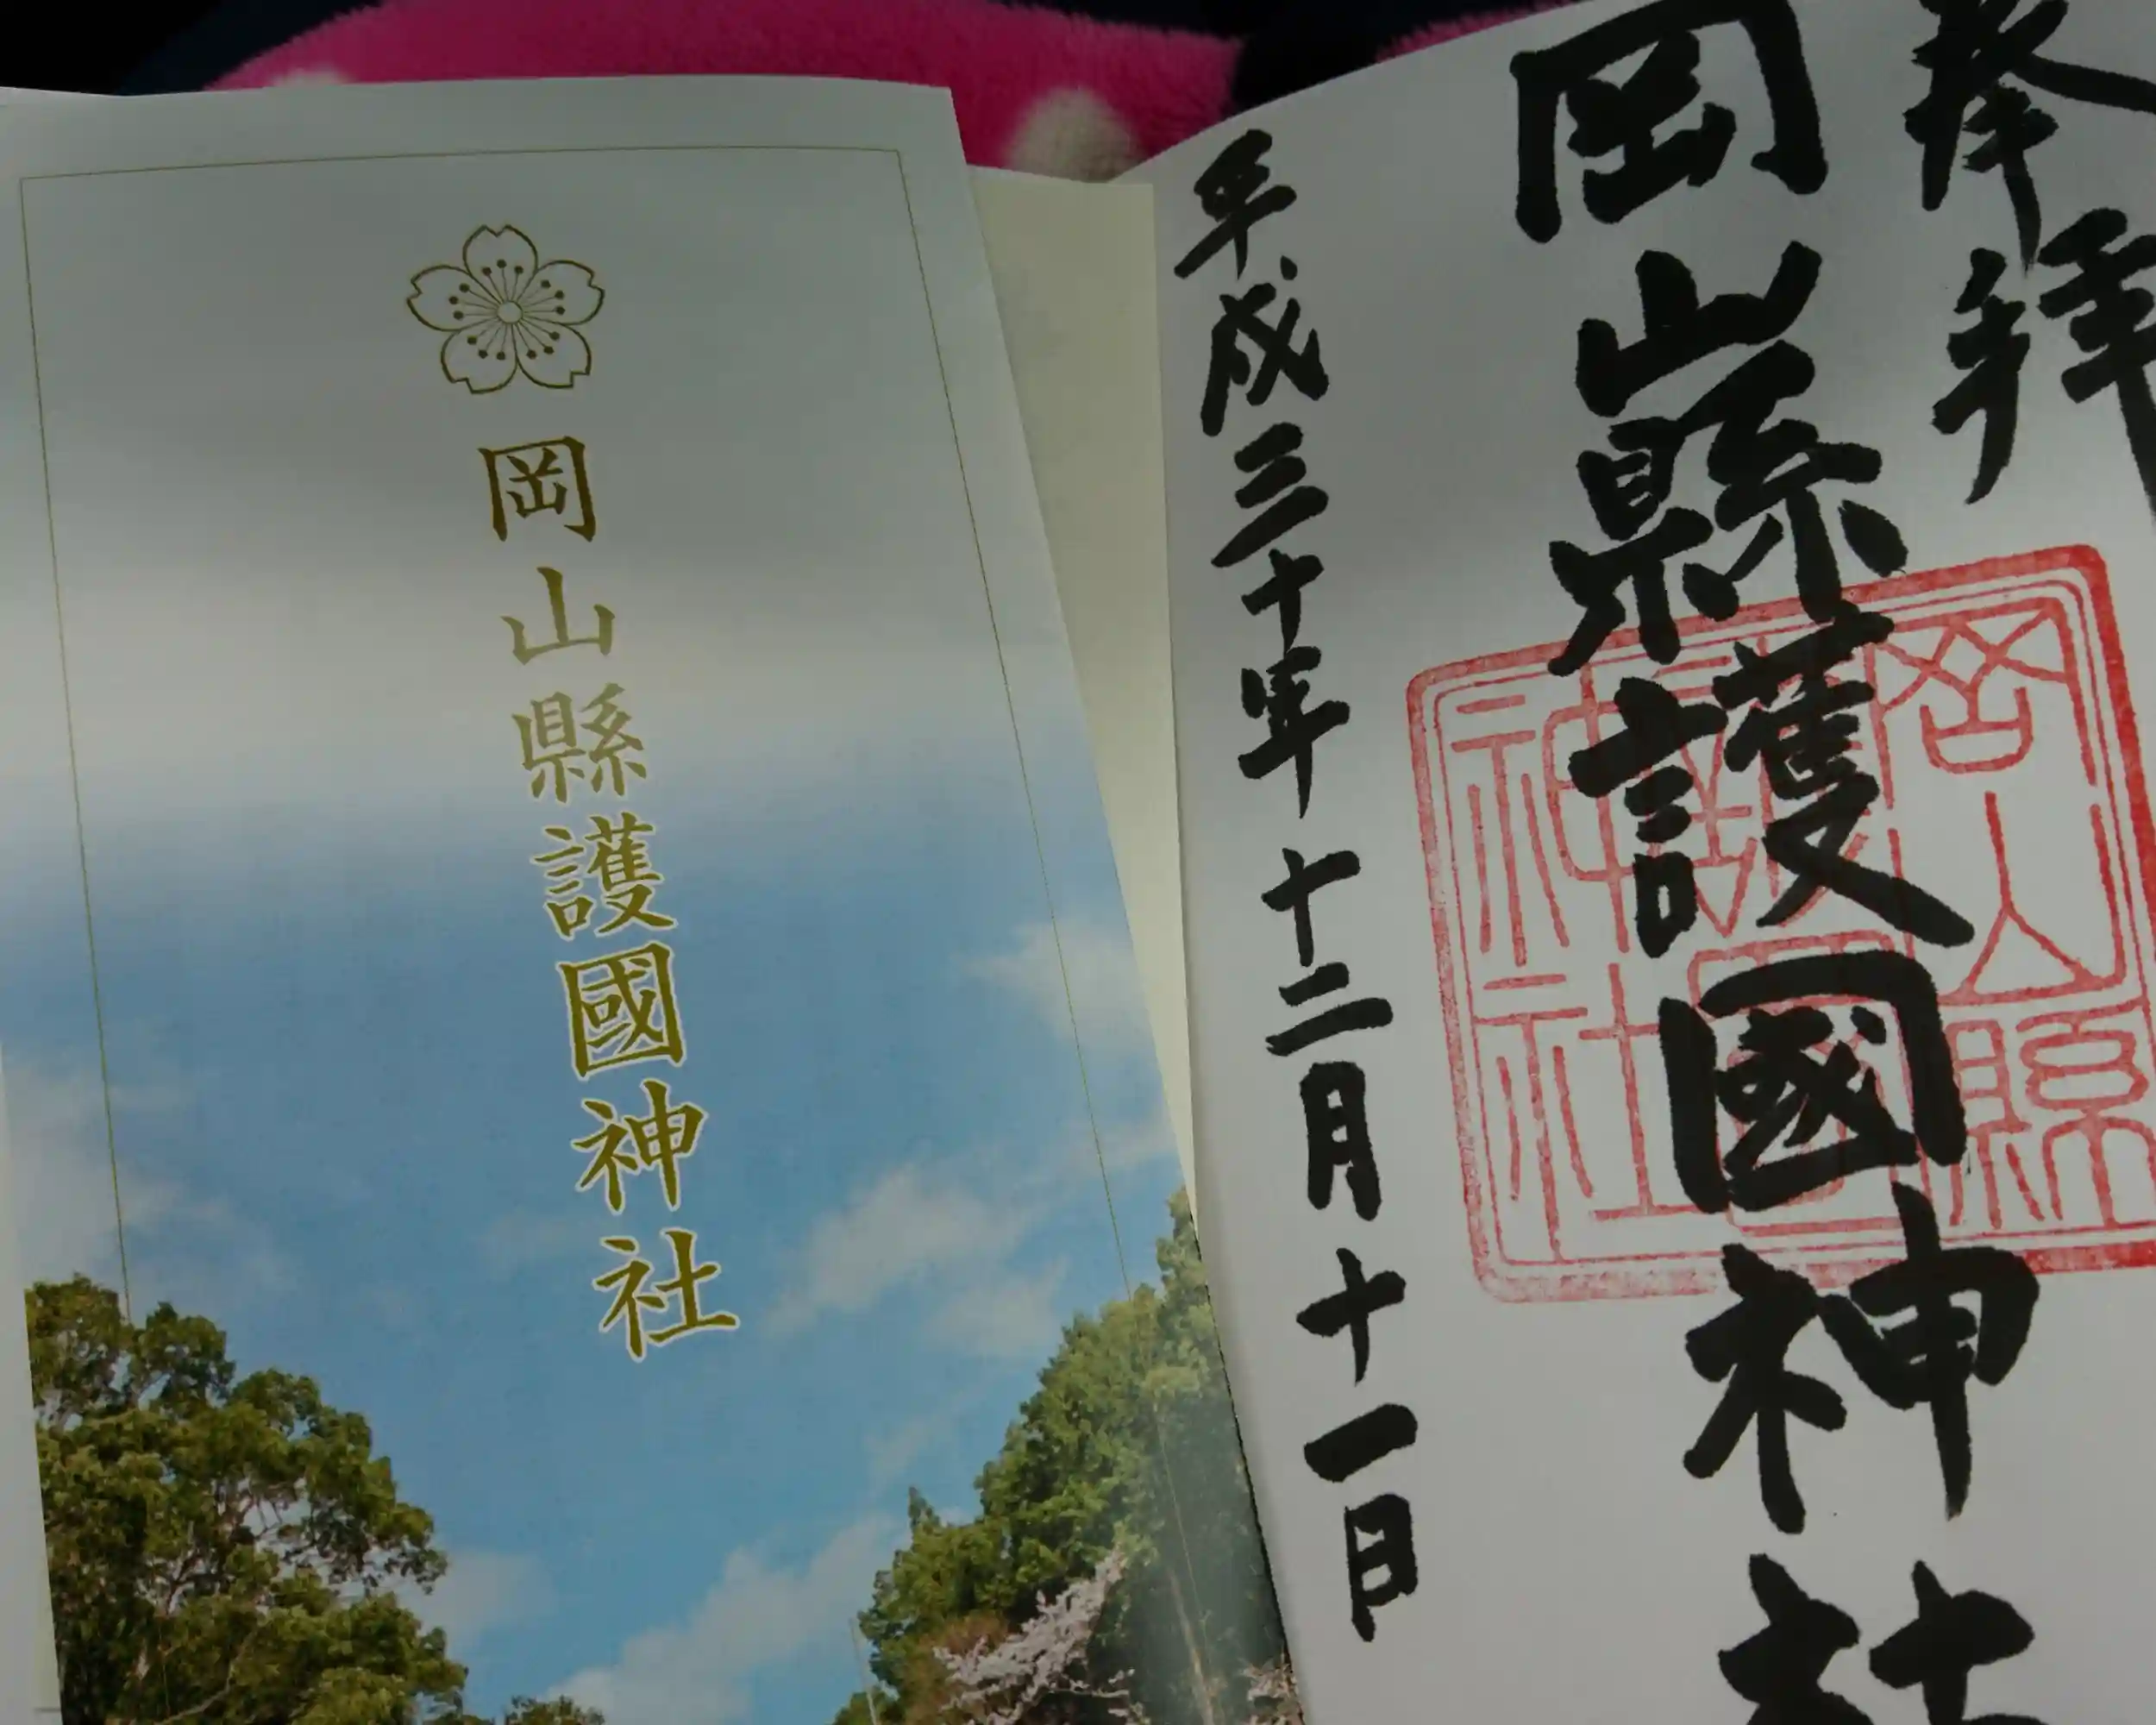 岡山縣護國神社
奉拝
岡山縣護國神社
平成三十年十二月十一日
岡山縣
護國
神社